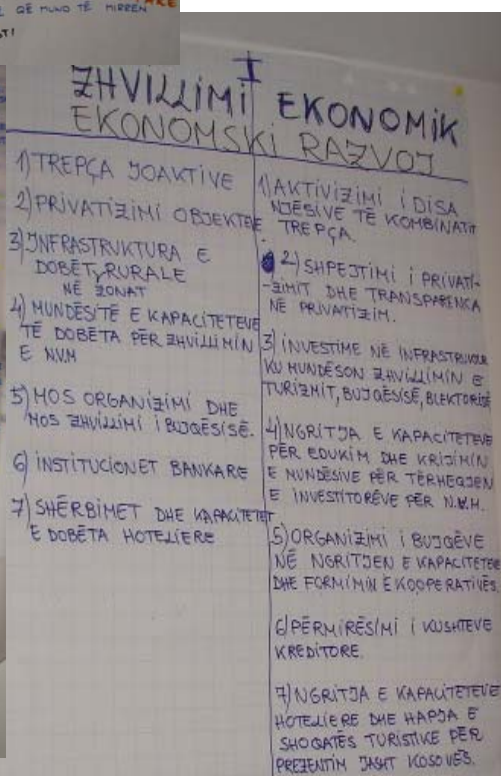 QË MUND TË MIRREN
ZHVILLIMI EKONOMIK
EKONOMSKI RAZVOJ
1) TREPÇA JOAKTIVE
2) PRIVATIZIMI OBJEKTEVE
3) INFRASTRUKTURA E
DOBËT, RURALE
NË ZONAT
4) MUNDËSITË E KAPACITETEVE
TË DOBËTA PËR ZHVILLIMIN
E NVM
5) MOS ORGANIZIMI DHE
MOS ZHVILLIMI I BUJQËSISË.
6) INSTITUCIONET BANKARE
7) SHËRBIMET DHE KAPACITETET
E DOBËTA HOTELIERE
1) AKTIVIZIMI I DISA
NJËSIVE TË KOMBINATIT
TREPÇA.
2) SHPEJTIMI I PRIVATI-
-ZIMIT DHE TRANSPARENCA
NË PRIVATIZIM.
3) INVESTIME NË INFRASTRUKTUR
KU MUNDËSON ZHVILLIMIN E
TURIZMIT, BUJQËSISË, BLEKTORISË
4) NGRITJA E KAPACITETEVE
PËR EDUKIM DHE KRIJIMIN
E MUNDËSIVE PËR TËRHEQJEN
E INVESTITORËVE PËR N.V.M.
5) ORGANIZIMI I BUJQËVE
NË NGRITJEN E KAPACITETEVE
DHE FORMIMIN E KOOPERATIVËS.
6) PËRMIRËSIMI I KUSHTEVE
KREDITORE.
7) NGRITJA E KAPACITETEVE
HOTELIERE DHE HAPJA E
SHOQATËS TURISTIKE PËR
PREZENTIM JASHT KOSOVËS.